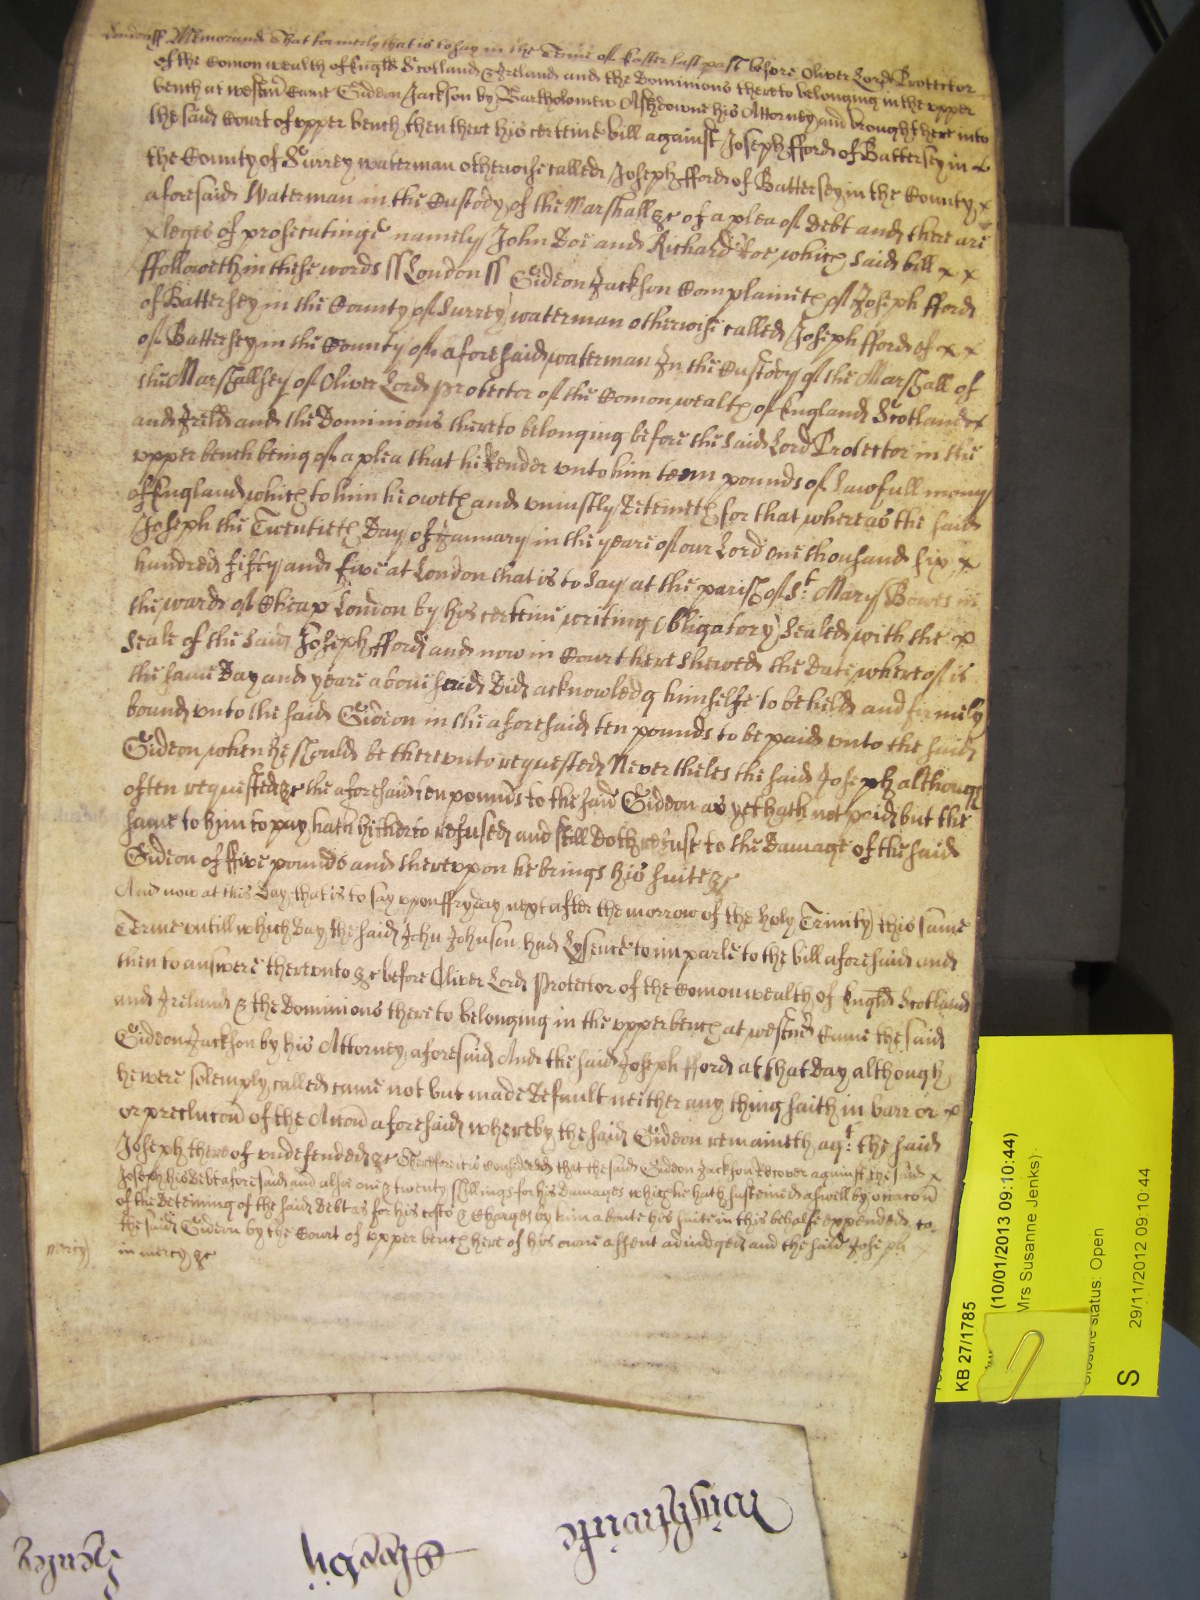 London ſſ Memorand That formerly that is to say in the Terme of Easter last past before Oliver Lord Protector
of the Comon wealth of Engld Scotland & Ireland and the Dominions thereto belonging in the upper
bench at westmr Came Gideon Jackson by Bartholomew Ashdowne his Attorney and brought here into
the said Court of upper bench then there his certeine bill against Joseph fford of Battersey in
the County of Surrey waterman otherwise called Joseph fford of Battersey in the County x
aforesaid Waterman in the Custody of the Marshall &c of a plea of debt and there are
pleges of prosecutinge namely John Doe and Richard Roe which said bill x x
ffolloweth in these words ſſ London ſſ Gideon Jackson Complaineth of Joseph fford
of Battersey in the County of Surrey waterman otherwise called Joseph fford of x x
of Battersey in the County of aforesaid waterman In the Custody of the Marshall of
the Marshallsey of Oliver Lord Protector of the Comon wealth of England Scotland x
and Ireld and the Dominions thereto belonging before the said Lord Protector in the
upper bench being of a plea that he Render unto him tenn pounds of Lawfull mony
of England which to him he oweth and uniustly deteineth for that whereas the said
Joseph the Twentieth Day of January in the yeare of our Lord one thousand six x
hundred fifty and five at London that is to say at the parish of St Mary Bowes in
the ward of Cheap London by his certeine writing Obligatory Sealed with the x
Seale of the said Joseph fford and now in Court here shewed the Date whereof is
the same Day and yeare above said Did acknowledg himselfe to be held and firmely
bound unto the said Gideon in the aforesaid ten pounds to be paid unto the said
Gideon when he should be thereunto requested Nevertheles the said Joseph although
often requested &c the aforesaid ten pounds to the said Gideon as yet hath not paid but the
same to him to pay hath hitherto refused and still doth refuse to the Damage of the said
Gideon of ffive pounds and thereupon he brings his suite &c
And now at this Day that is to say upon ffryday next after the morrow of the Holy Trinity this same
Terme untill which Day the said John Johnson had Lysence to imparle to the bill aforesaid and
then to answere thereunto &c before Oliver Lord Protector of the Comonwealth of Engld Scotland
and Ireland & the Dominions thereto belonging in the upper bench at westmr Came the said
Gideon Jackson by his Attorney aforesaid And the said Joseph fford at that Day although
he were solemply called came not but made Default neither any thing saith in barr or x
or preclucon of the Accon aforesaid whereby the said Gideon remaineth agt the said
Joseph thereof undefended &c Therefore it is Considered that the said Gideon Jackson Recover against the said x
Joseph his Debt aforesaid and alsoe one & twenty shillings for his Damages which he hath susteined aswell by occacon
of the Deteining of the said Debt as for his costs & Charges by him aboute his suite in this behalfe expended to
the said Gideon by the Court of upper bench here of his owne assent adiudged and the said Joseph x
mercy in mercy &c
KB 27/1785
(10/01/2013 09:10:44)
Mrs Susanne Jenks)
Closure status: Open
S
29/11/2012 09:10:44